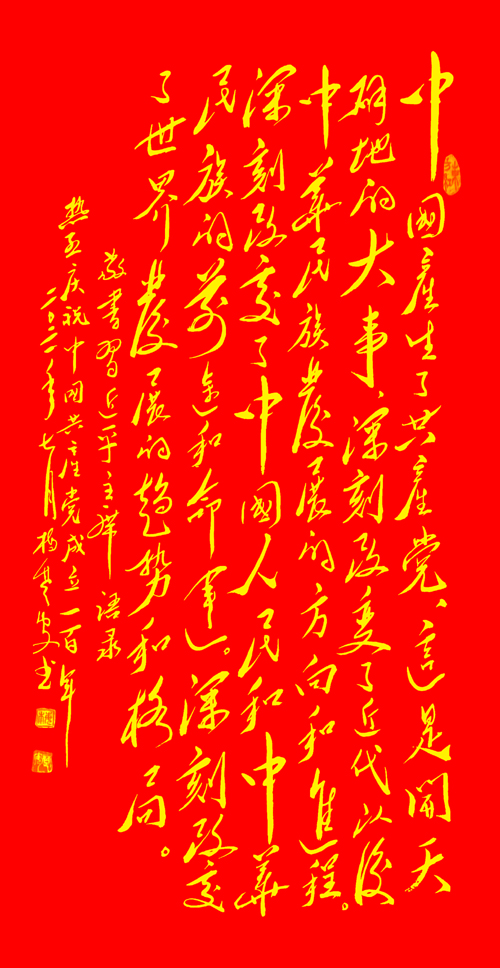 中國產生了共產党、這是開天
辟地的大事、深刻改变了近代以後
中華民族發展的方向和進程。
深刻改变了中國人民和中華
民族的前途和命運。深刻改变
了世界發展的趋势和格局。
敬書習近平主席語录
热烈庆祝中国共產党成立一百年
二〇二一年七月杨书